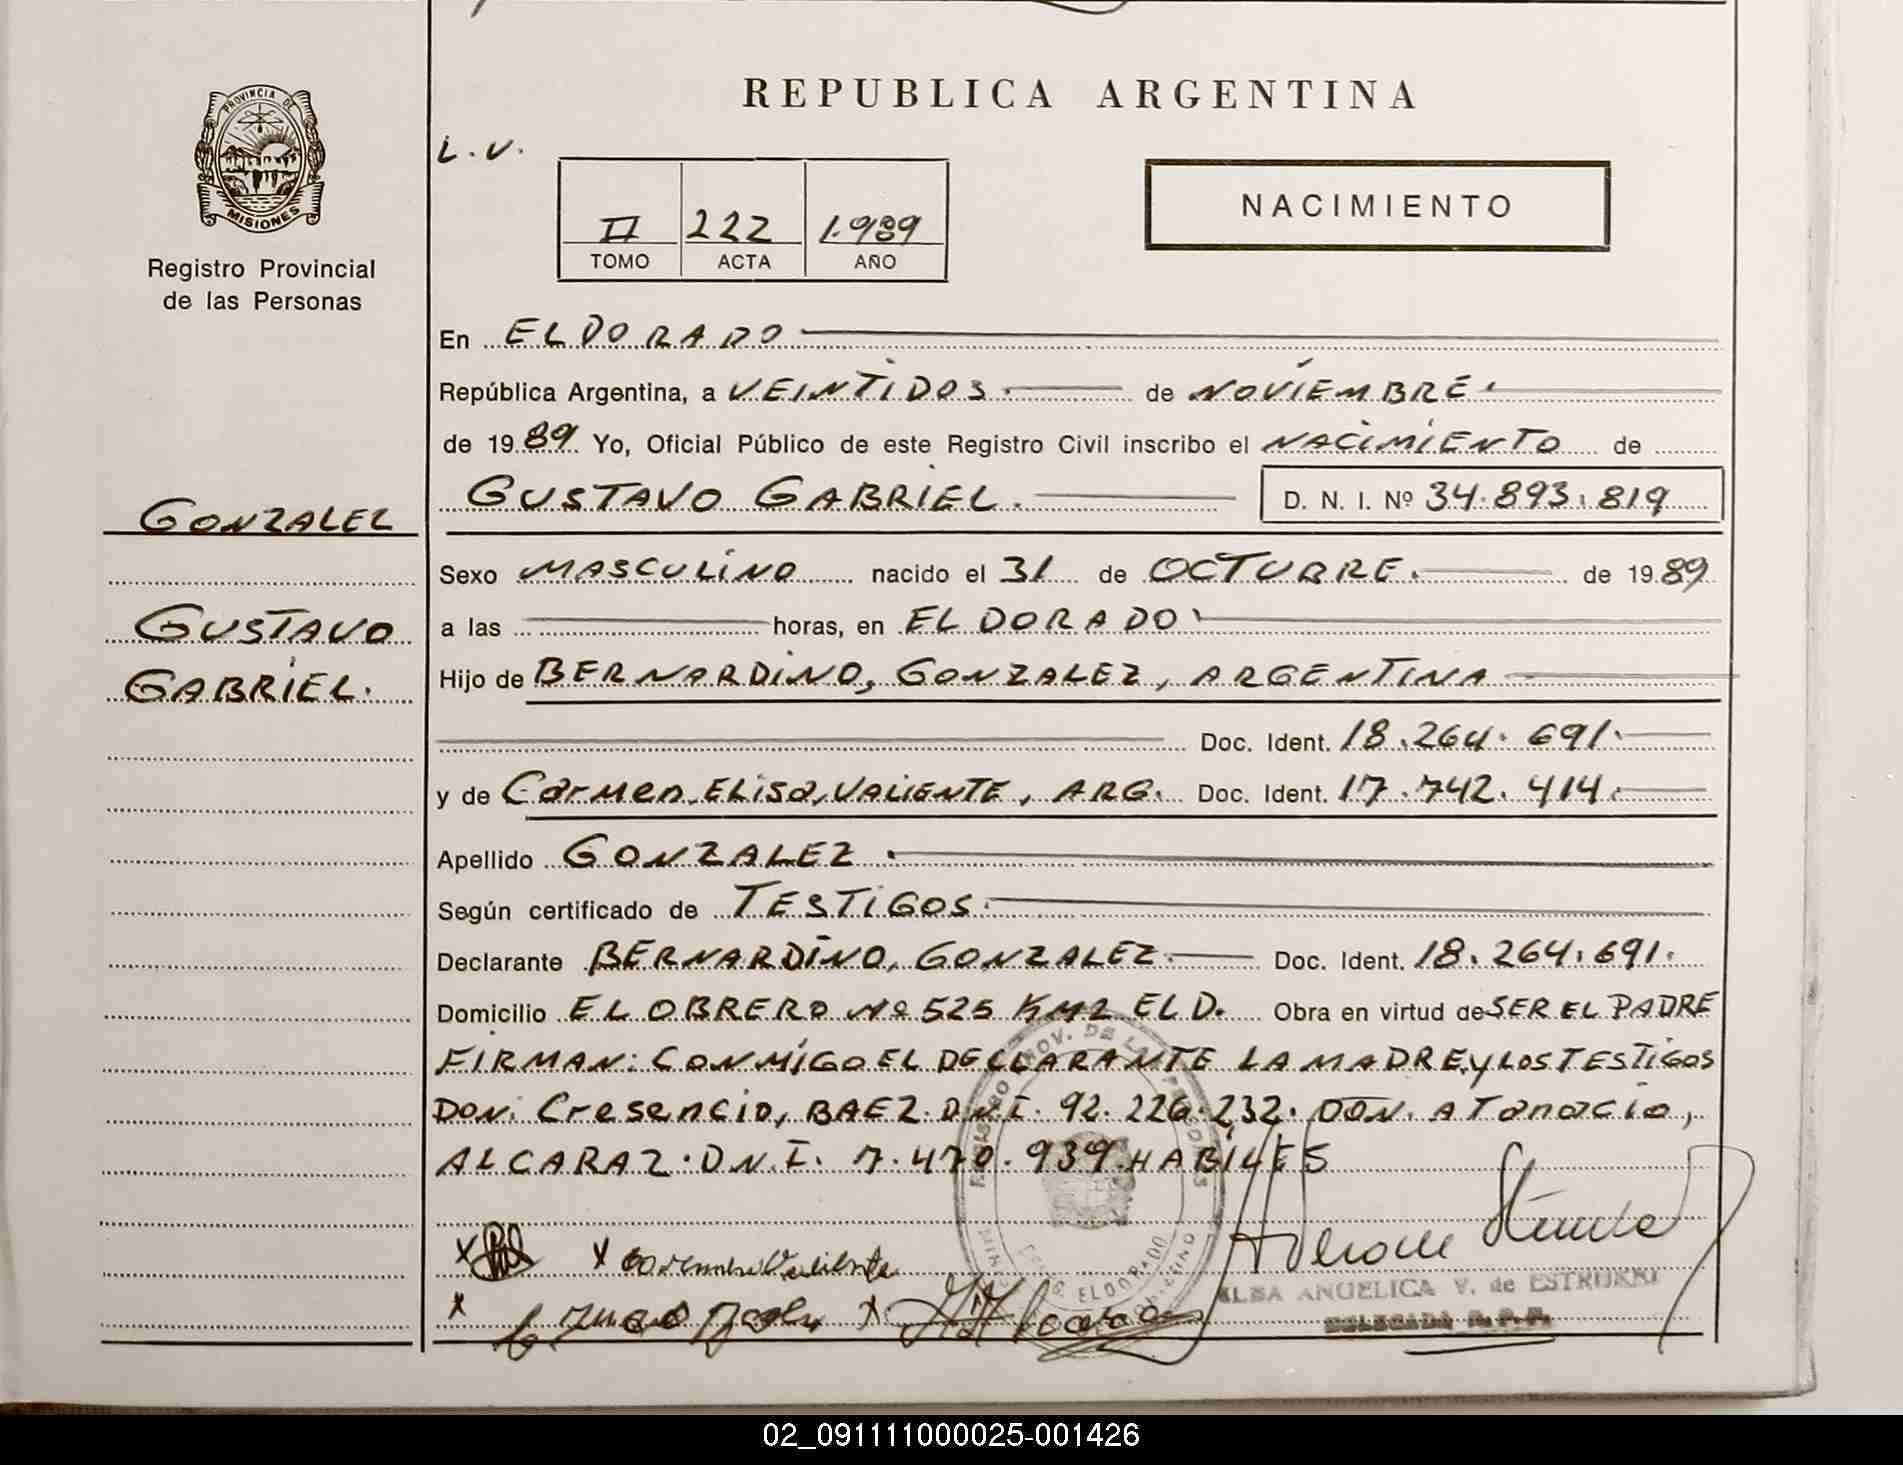 REPUBLICA ARGENTINA
PROVINCIA DE
MISIONES
Registro Provincial
de las Personas
L.V.
II 222 1.989
TOMO ACTA AÑO
NACIMIENTO
En ELDORADO
República Argentina, a VEINTIDOS. de NOVIEMBRE.
de 1989 Yo, Oficial Público de este Registro Civil inscribo el NACIMIENTO de
GUSTAVO GABRIEL. D. N. I. Nº 34.893.819
GONZALEZ
GUSTAVO
GABRIEL.
Sexo MASCULINO nacido el 31 de OCTUBRE. de 1989
a las horas, en ELDORADO.
Hijo de BERNARDINO, GONZALEZ, ARGENTINA
Doc. Ident. 18.264.691.
y de Carmen, ELisa, VALIENTE, ARG. Doc. Ident. 17.742.414.
Apellido GONZALEZ.
Según certificado de TESTIGOS.
Declarante BERNARDINO, GONZALEZ. Doc. Ident. 18.264.691.
Domicilio EL OBRERO Nº 525 KM2 ELD. Obra en virtud de SER EL PADRE
FIRMAN: CONMIGO EL DECLARANTE LA MADRE, y LOS TESTIGOS
DON. Cresencio, BAEZ. D.N.I. 92.226.232. DON. ATanacio,
ALCARAZ. D.N.I. 7.470.939. HABILES
ELDORADO
ELSA ANGELICA V. de
DELEGADA R.P.P.
02_091111000025-001426